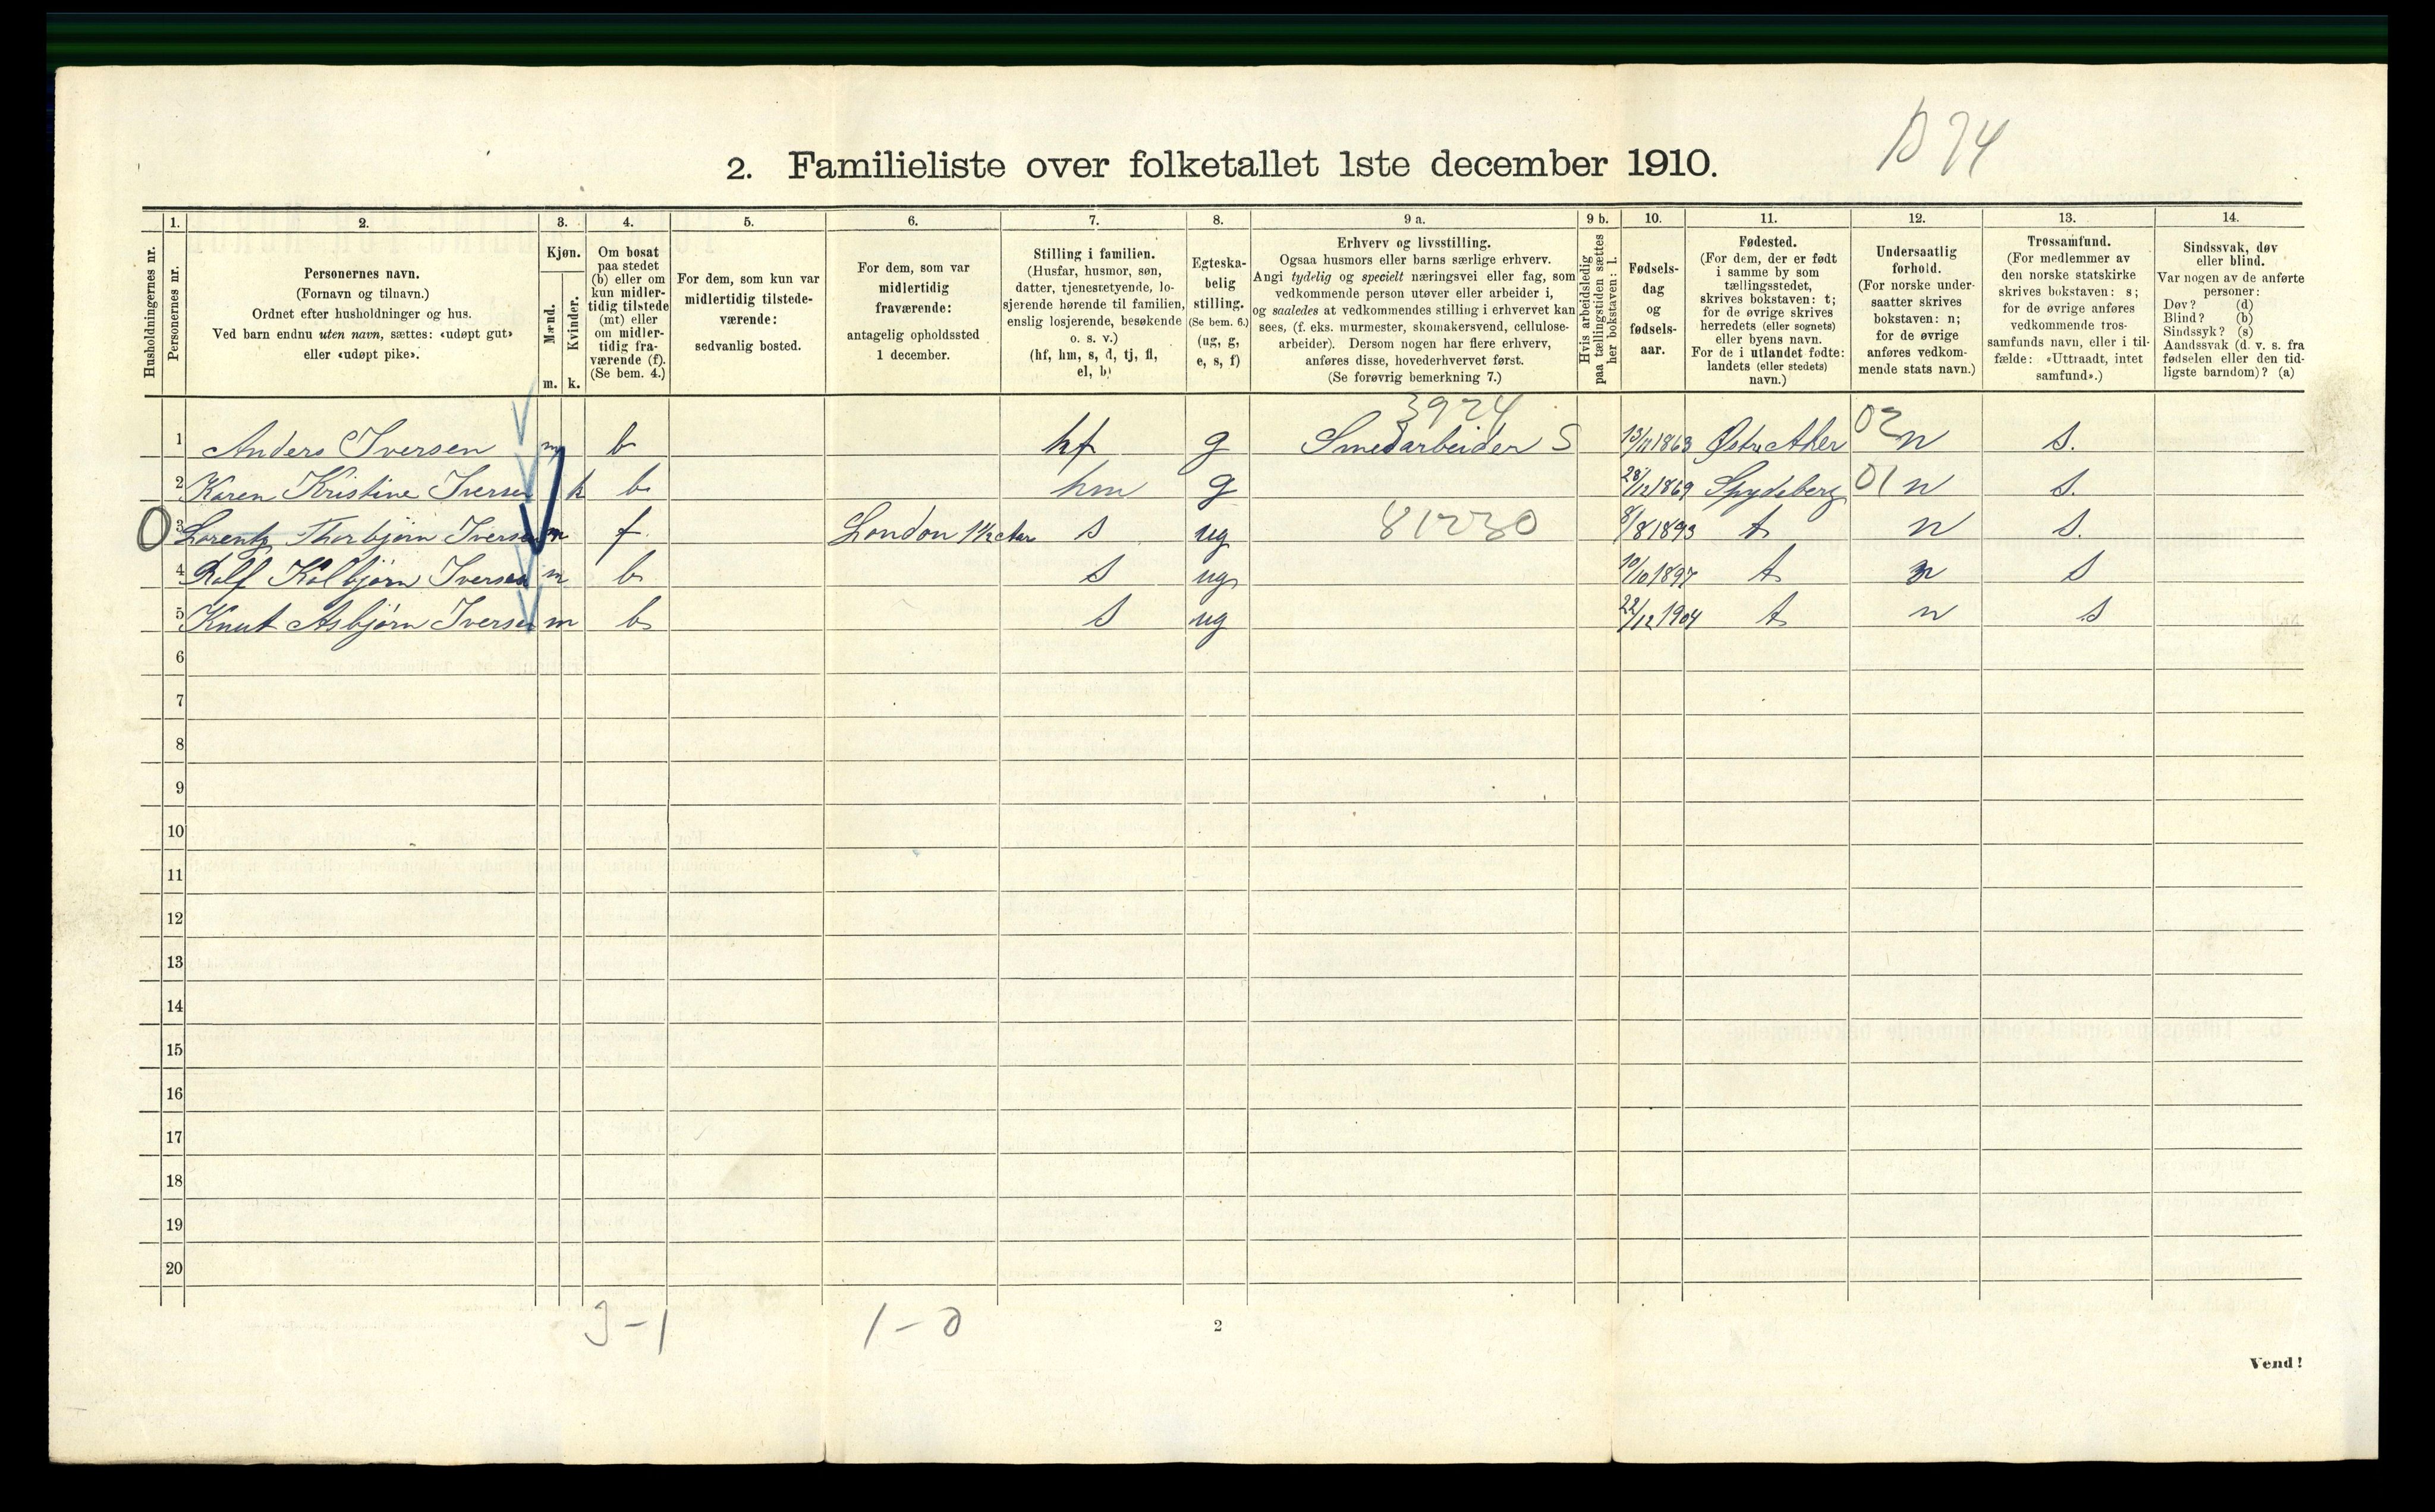 D 74
2. Familieliste over folketallet 1ste december 1910.
1. 2. 3. 4. 5. 6. 7. 8. 9 a. 9 b. 10. 11. 12. 13. 14.
Husholdningernes nr.
Personernes nr.
Personernes navn.
(Fornavn og tilnavn.)
Ordnet efter husholdninger og hus.
Ved barn endnu uten navn, sættes: «udøpt gut»
eller «udøpt pike».
Kjøn.
Mænd.
Kvinder.
m. k.
Om bosat
paa stedet
(b) eller om
kun midler-
tidig tilstede
(mt) eller
om midler-
tidig fra-
værende (f).
(Se bem. 4.)
For dem, som kun var
midlertidig tilstede-
værende:
sedvanlig bosted.
For dem, som var
midlertidig
fraværende:
antagelig opholdssted
1 december.
Stilling i familien.
(Husfar, husmor, søn,
datter, tjenestetyende, lo-
sjerende hørende til familien,
enslig losjerende, besøkende
o. s. v.)
(hf, hm, s, d, tj, fl,
el, b)
Egteska-
belig
stilling.
(Se bem. 6.)
(ug, g,
e, s, f)
Erhverv og livsstilling.
Ogsaa husmors eller barns særlige erhverv.
Angi tydelig og specielt næringsvei eller fag, som
vedkommende person utøver eller arbeider i,
og saaledes at vedkommendes stilling i erhvervet kan
sees, (f. eks. murmester, skomakersvend, cellulose-
arbeider). Dersom nogen har flere erhverv,
anføres disse, hovederhvervet først.
(Se forøvrig bemerkning 7.)
Hvis arbeidsledig
paa tællingstiden sættes
her bokstaven: l.
Fødsels-
dag
og
fødsels-
aar.
Fødested.
(For dem, der er født
i samme by som
tællingsstedet,
skrives bokstaven: t;
for de øvrige skrives
herredets (eller sognets)
eller byens navn.
For de i utlandet fødte:
landets (eller stedets)
navn.)
Undersaatlig
forhold.
(For norske under-
saatter skrives
bokstaven: n;
for de øvrige
anføres vedkom-
mende stats navn.)
Trossamfund.
(For medlemmer av
den norske statskirke
skrives bokstaven: s;
for de øvrige anføres
vedkommende tros-
samfunds navn, eller i til-
fælde: «Uttraadt, intet
samfund».)
Sindssvak, døv
eller blind.
Var nogen av de anførte
personer:
Døv? (d)
Blind? (b)
Sindssyk? (s)
Aandssvak (d. v. s. fra
fødselen eller den tid-
ligste barndom)? (a)
3924
1 Anders Iversen m b hf g Smedarbeider S 13/11 1863 Østre Aker 02 n s.
2 Karen Kristine Iversen k b hm g 28/12 1869 Spydeberg 01 n s.
0 3 Lorentz Thorbjørn Iversen m f London 1 1/2 Aar s ug 81230 8/8 1893 t n s.
4 Rolf Kolbjørn Iversen m b s ug 10/10 1897 t n s
5 Knut Asbjørn Iversen m b s ug 22/12 1904 t n s
6
7
8
9
10
11
12
13
14
15
16
17
18
19
20
3-1 1-0
2
Vend!